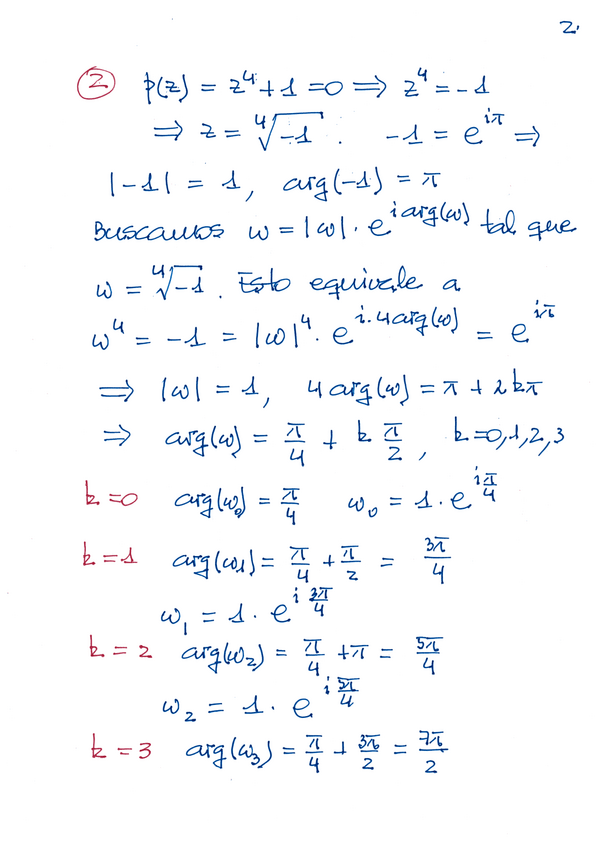 2.
② p(z) = z⁴ + 1 = 0 ⟹ z⁴ = -1
⟹ z = ⁴√-1 . -1 = e^{iπ} ⟹
|-1| = 1, arg(-1) = π
Buscamos ω = |ω| · e^{i arg(ω)} tal que
ω = ⁴√-1 . Esto equivale a
ω⁴ = -1 = |ω|⁴ · e^{i·4arg(ω)} = e^{iπ}
⟹ |ω| = 1, 4 arg(ω) = π + 2kπ
⟹ arg(ω) = π/4 + k π/2 , k=0,1,2,3
k=0 arg(ω₀) = π/4 ω₀ = 1 · e^{iπ/4}
k=1 arg(ω₁) = π/4 + π/2 = 3π/4
ω₁ = 1 · e^{i 3π/4}
k=2 arg(ω₂) = π/4 + π = 5π/4
ω₂ = 1 · e^{i 5π/4}
k=3 arg(ω₃) = π/4 + 3π/2 = 7π/2